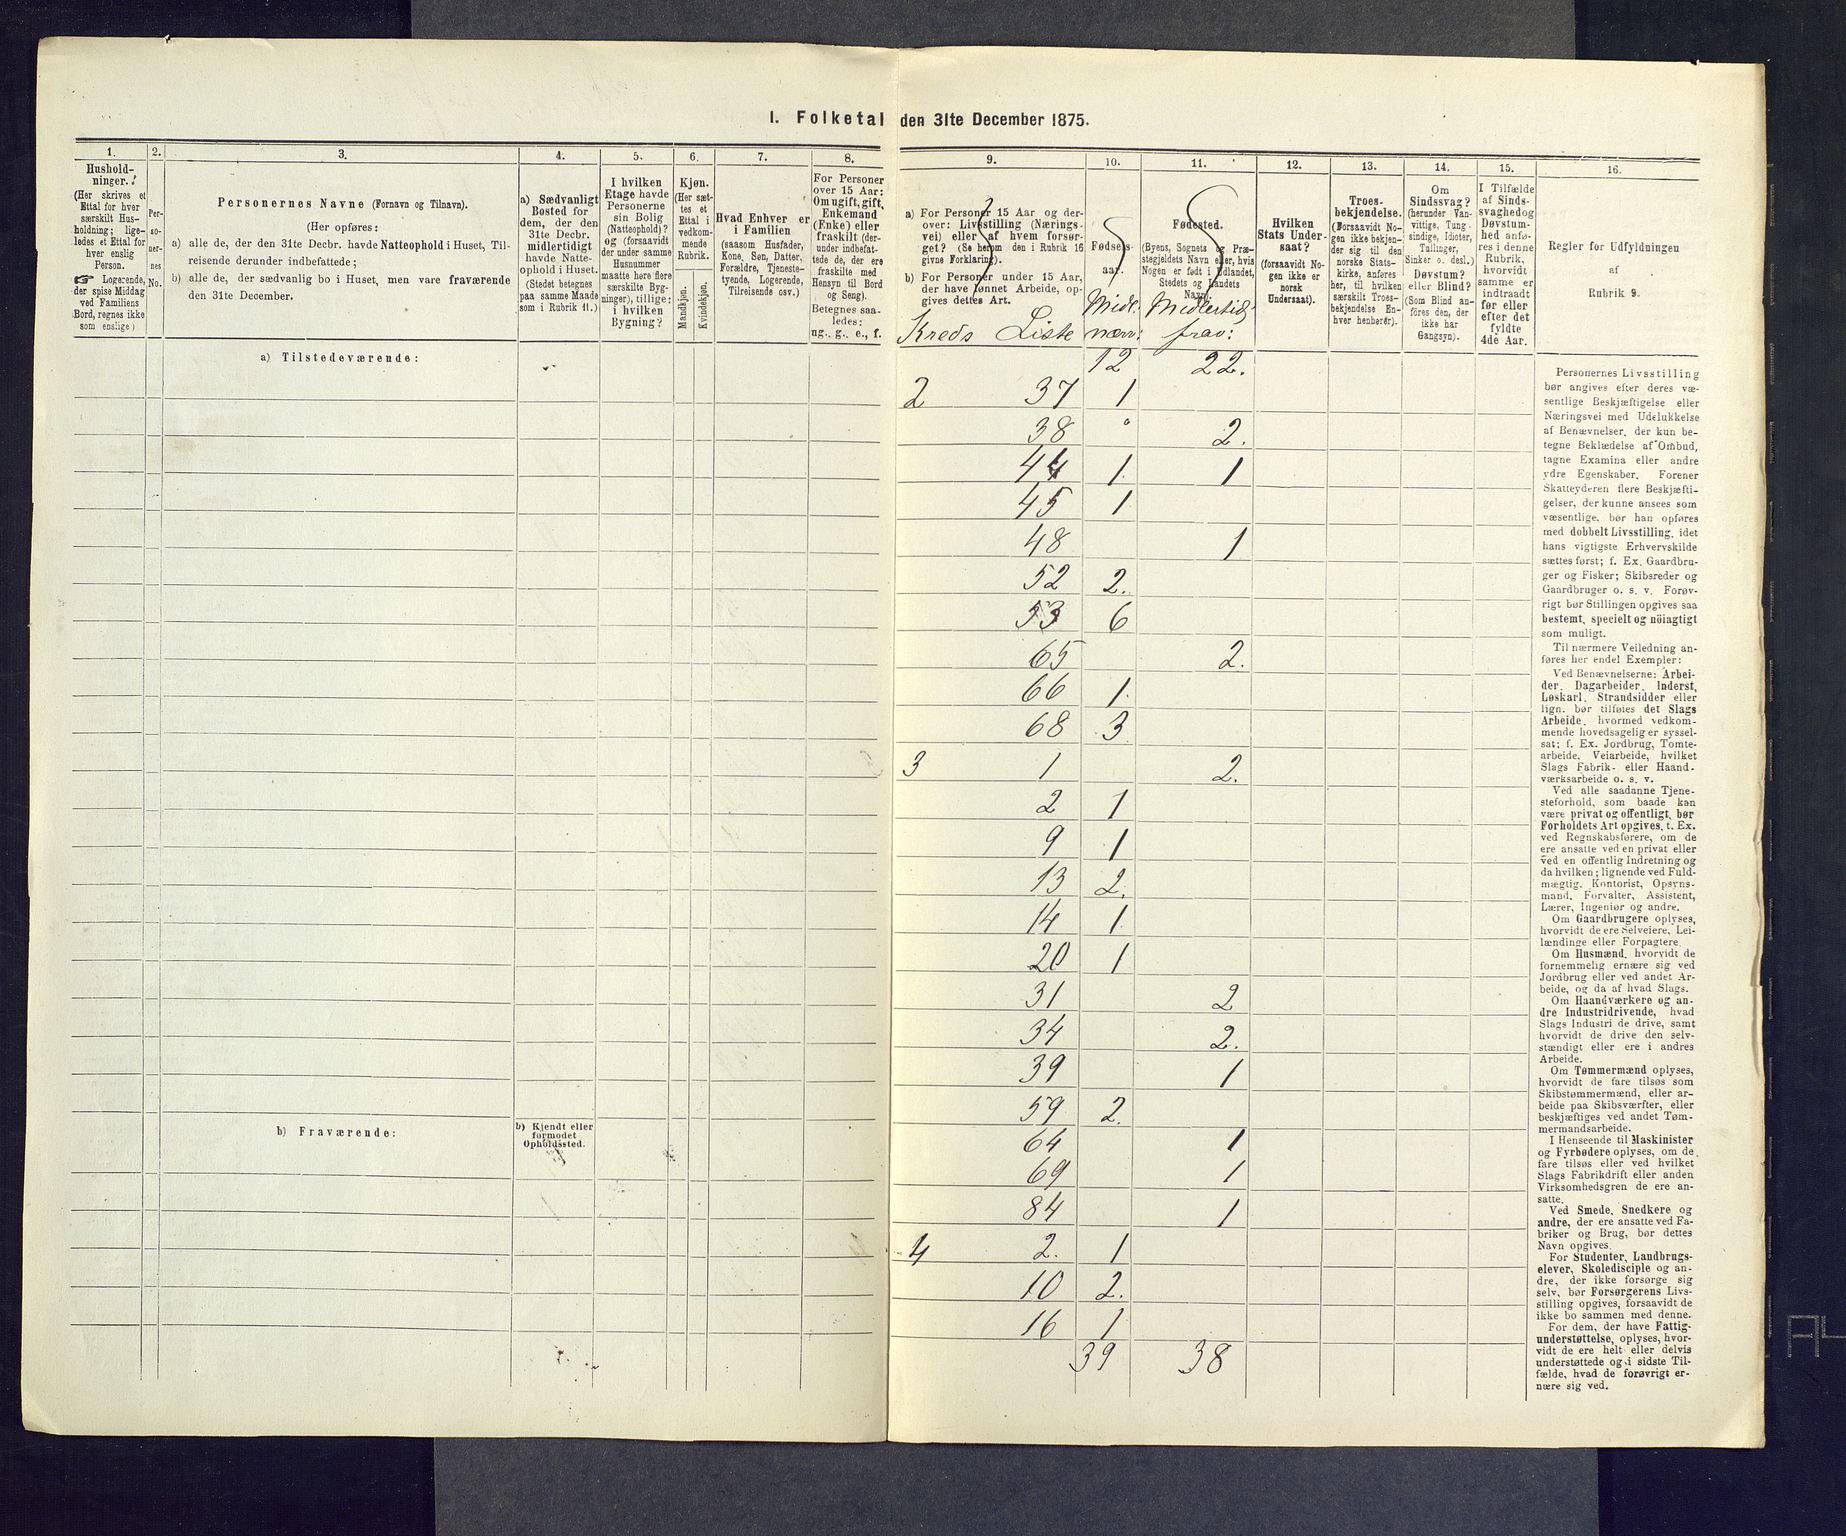 I. Folketal den 31te December 1875.
1.
Hushold-
ninger.
(Her skrives et
Ettal for hver
særskilt Hus-
holdning; lige-
ledes et Ettal for
hver enslig
Person.
☞ Logerende,
der spise Middag
ved Familiens
Bord, regnes ikke
som enslige)
2.
Per-
so-
ner-
nes
No.
3.
Personernes Navne (Fornavn og Tilnavn).
(Her opføres:
a) alle de, der den 31te Decbr. havde Natteophold i Huset, Til-
reisende derunder indbefattede;
b) alle de, der sædvanlig bo i Huset, men vare fraværende
den 31te December.
4.
a) Sædvanligt
Bosted for
dem, der den
31te Decbr.
midlertidigt
havde Natte-
ophold i Huset.
(Stedet betegnes
paa samme Maade
som i Rubrik 11.)
5.
I hvilken
Etage havde
Personerne
sin Bolig
(Natteophold)?
og (forsaavidt
der under samme
Husnummer
maatte høre flere
særskilte Byg-
ninger), tillige:
i hvilken
Bygning?
6.
Kjøn.
(Her sæt-
tes et
Ettal i
vedkom-
mende
Rubrik.
Mandkjøn.
Kvindekjøn.
7.
Hvad Enhver er
i Familien
(saasom Husfader,
Kone, Søn, Datter,
Forældre, Tjeneste-
tyende, Logerende,
Tilreisende osv.)
8.
For Personer
over 15 Aar:
Om ugift, gift,
Enkemand
(Enke) eller
fraskilt (der-
under indbefat-
tede de, der ere
fraskilte med
Hensyn til Bord
og Seng).
Betegnes saa-
ledes:
ug., g., e., f.
9.
a) For Personer 15 Aar og der-
over: Livsstilling (Nærings-
vei) eller af hvem forsør-
get? (Se herom den i Rubrik 16
givne Forklaring).
b) For Personer under 15 Aar,
der have lønnet Arbeide, op-
gives dettes Art.
Kreds Liste
10.
Fødsels-
aar.
Midl.
nærv:
11.
Fødested.
(Byens, Sognets og Præ-
stegjeldets Navn eller, hvis
Nogen er født i Udlandet,
Stedets og Landets
Navn).
Midlertid.
frav:
12.
Hvilken
Stats Under-
saat?
(forsaavidt No-
gen ikke er
norsk
Undersaat).
13.
Troes-
bekjendelse.
(Forsaavidt No-
gen ikke bekjen-
der sig til den
norske Stats-
kirke, anføres
her, til hvilken
særskilt Troes-
bekjendelse En-
hver henhører).
14.
Om
Sindssvag?
(herunder Van-
vittige, Tung-
sindige, Idioter,
Tullinger,
Sinker o. desl.)
Døvstum?
eller Blind?
(Som Blind an-
føres den, der
ikke har
Gangsyn).
15.
I Tilfælde
af Sinds-
svaghed og
Døvstum-
hed anfø-
res i denne
Rubrik,
hvorvidt
samme er
indtraadt
før eller
efter det
fyldte
4de Aar.
16.
Regler for Udfyldningen
af
Rubrik 9.
a) Tilstedeværende:
12 22.
2 37 1
38 " 2.
44 1. 1
45 1
48 1
52 2.
53 6
65 2.
66 1.
68 3
3 1 2.
2 1
9 1
13 2.
14 1
20 1
31 2
34 2.
39 1
59 2.
b) Fraværende:
b) Kjendt eller
formodet
Opholdssted.
64 1
69 1
84 1
4 2. 1
10 2.
16 1
39 38
Personernes Livsstilling
bør angives efter deres væ-
sentlige Beskjæftigelse eller
Næringsvei med Udelukkelse
af Benævnelser, der kun be-
tegne Beklædelse af Ombud,
tagne Examina eller andre
ydre Egenskaber. Forener
Skatteyderen flere Beskjæfti-
gelser, der kunne ansees som
væsentlige, bør han opføres
med dobbelt Livsstilling, idet
hans vigtigste Erhvervskilde
sættes først; f. Ex. Gaardbru-
ger og Fisker; Skibsreder og
Gaardbruger o. s. v. Forøv-
rigt bør Stillingen opgives saa
bestemt, specielt og nöiagtigt
som muligt.
Til nærmere Veiledning an-
føres her endel Exempler:
Ved Benævnelserne: Arbei-
der, Dagarbeider, Inderst,
Løskarl, Strandsidder eller
lign. bør tilføies det Slags
Arbeide, hvormed vedkom-
mende hovedsagelig er syssel-
sat; f. Ex. Jordbrug, Tomte-
arbeide, Veiarbeide, hvilket
Slags Fabrik- eller Haand-
værksarbeide o. s. v.
Ved alle saadanne Tjene-
steforhold, som baade kan
være privat og offentligt, bør
Forholdets Art opgives, t. Ex.
ved Regnskabsførere, om de
ere ansatte ved en privat eller
ved en offentlig Indretning og
da hvilken; lignende ved Fuld-
mægtig, Kontorist, Opsyns-
mand, Forvalter, Assistent,
Lærer, Ingeniør og andre.
Om Gaardbrugere oplyses,
hvorvidt de ere Selveiere, Lei-
lændinge eller Forpagtere.
Om Husmænd, hvorvidt de
fornemmelig ernære sig ved
Jordbrug eller ved andet Ar-
beide, og da af hvad Slags.
Om Haandværkere og an-
dre Industridrivende, hvad
Slags Industri de drive, samt
hvorvidt de drive den selv-
stændigt eller ere i andres
Arbeide.
Om Tømmermænd oplyses,
hvorvidt de fare tilsøs som
Skibstømmermænd, eller ar-
beide paa Skibsværfter, eller
beskjæftiges ved andet Tøm-
mermandsarbeide.
I Henseende til Maskinister
og Fyrbødere oplyses, om de
fare tilsøs eller ved hvilket
Slags Fabrikdrift eller anden
Virksomhedsgren de ere an-
satte.
Ved Smede, Snedkere og
andre, der ere ansatte ved Fa-
briker og Brug, bør dettes
Navn opgives.
For Studenter, Landbrugs-
elever, Skoledisciple og an-
dre, der ikke forsørge sig
selv, bør Forsørgerens Livs-
stilling opgives, forsaavidt de
ikke bo sammen med denne.
For dem, der have Fattig-
understøttelse, oplyses, hvor-
vidt de ere helt eller delvis
understøttede og i sidste Til-
fælde, hvad de forøvrigt er-
nære sig ved.